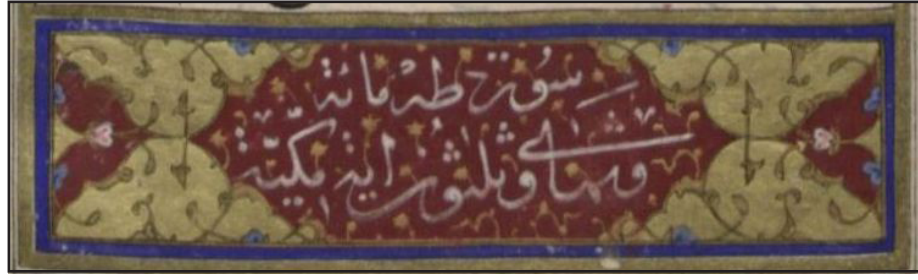 سورة طه مائة
وثماني وثلثون اية مكية